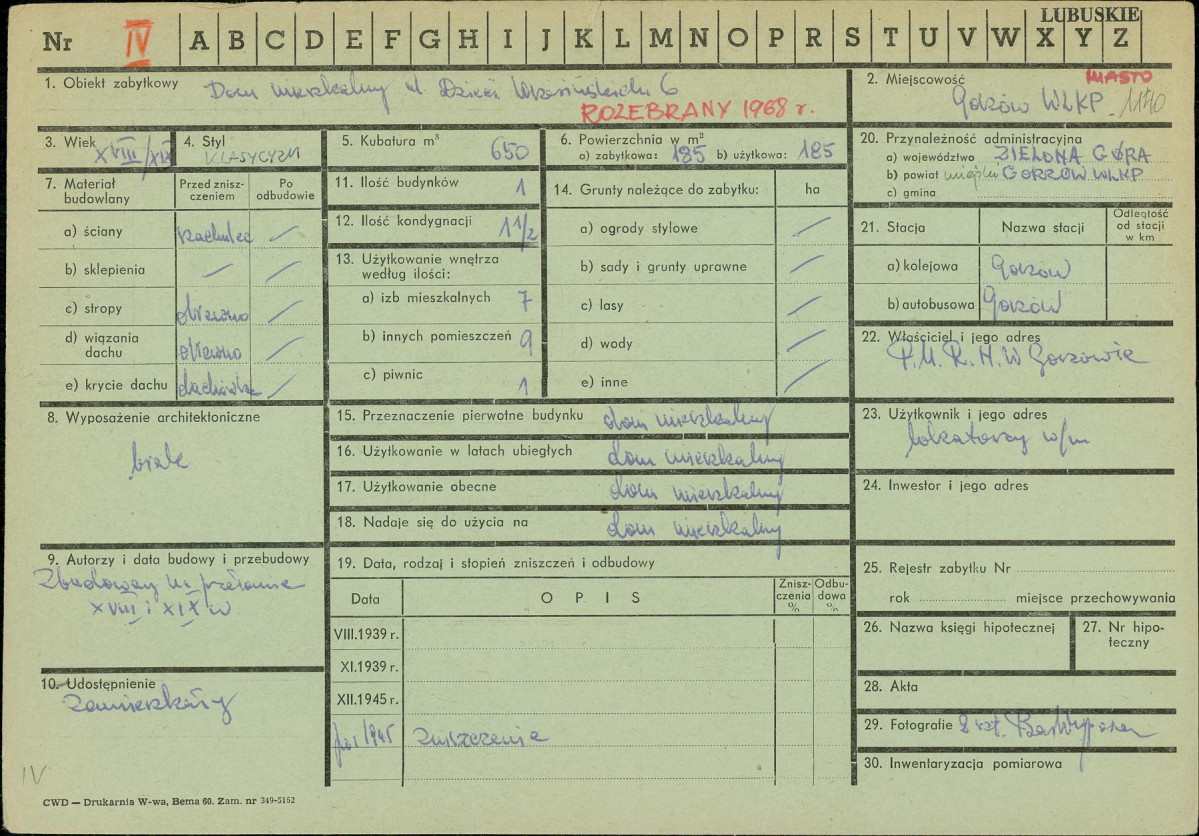 LUBUSKIE
Nr IV A B C D E F G H I J K L M N O P R S T U V W X Y Z
1. Obiekt zabytkowy Dom mieszkalny ul Dzieci Wrzesińskich 6
ROZEBRANY 1968 r.
2. Miejscowość MIASTO
Gorzów WLKP. 1170
3. Wiek XVIII/XIX
4. Styl KLASYCYZM
5. Kubatura m³ 650
6. Powierzchnia w m²
a) zabytkowa: 185 b) użytkowa: 185
20. Przynależność administracyjna
a) województwo ZIELONA GÓRA
b) powiat miejski GORZÓW WLKP
c) gmina
7. Materiał budowlany
Przed zniszczeniem
Po odbudowie
a) ściany —
b) sklepienia — —
c) stropy drewno —
d) wiązania dachu drewno —
e) krycie dachu dachówka —
11. Ilość budynków 1
12. Ilość kondygnacji 1 1/2
13. Użytkowanie wnętrza według ilości:
a) izb mieszkalnych 7
b) innych pomieszczeń 9
c) piwnic 1
14. Grunty należące do zabytku: ha
a) ogrody stylowe —
b) sady i grunty uprawne —
c) lasy —
d) wody —
e) inne —
21. Stacja Nazwa stacji Odległość od stacji w km
a) kolejowa Gorzów
b) autobusowa Gorzów
22. Właściciel i jego adres
P.M.R.N. W Gorzowie
8. Wyposażenie architektoniczne
brak
15. Przeznaczenie pierwotne budynku dom mieszkalny
16. Użytkowanie w latach ubiegłych dom mieszkalny
17. Użytkowanie obecne dom mieszkalny
18. Nadaje się do użycia na dom mieszkalny
23. Użytkownik i jego adres
lokatorzy w/m
24. Inwestor i jego adres
9. Autorzy i data budowy i przebudowy
Zbudowany na przełomie
XVIII i XIX w
10. Udostępnienie
zamieszkały
19. Data, rodzaj i stopień zniszczeń i odbudowy
Data OPIS Zniszczenia % Odbudowa %
VIII.1939 r.
XI.1939 r.
XII.1945 r.
1945 zniszczenia
25. Rejestr zabytku Nr
rok miejsce przechowywania
26. Nazwa księgi hipotecznej
27. Nr hipoteczny
28. Akta
29. Fotografie 2 szt.
30. Inwentaryzacja pomiarowa
IV
CWD — Drukarnia W-wa, Bema 60. Zam. nr 349-5162